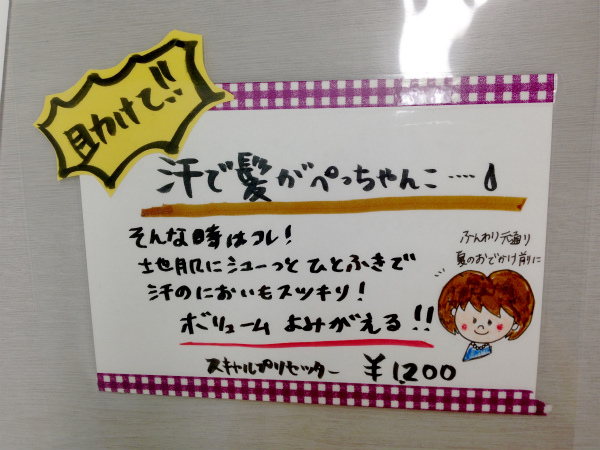 助けて!!
汗で髪がぺっちゃんこ……
そんな時はコレ!
地肌にシューっとひとふきで
汗のにおいもスッキリ!
ボリュームよみがえる!!
ふんわり元通り
夏のおでかけ前に
スキャルプリセッター ¥1,200